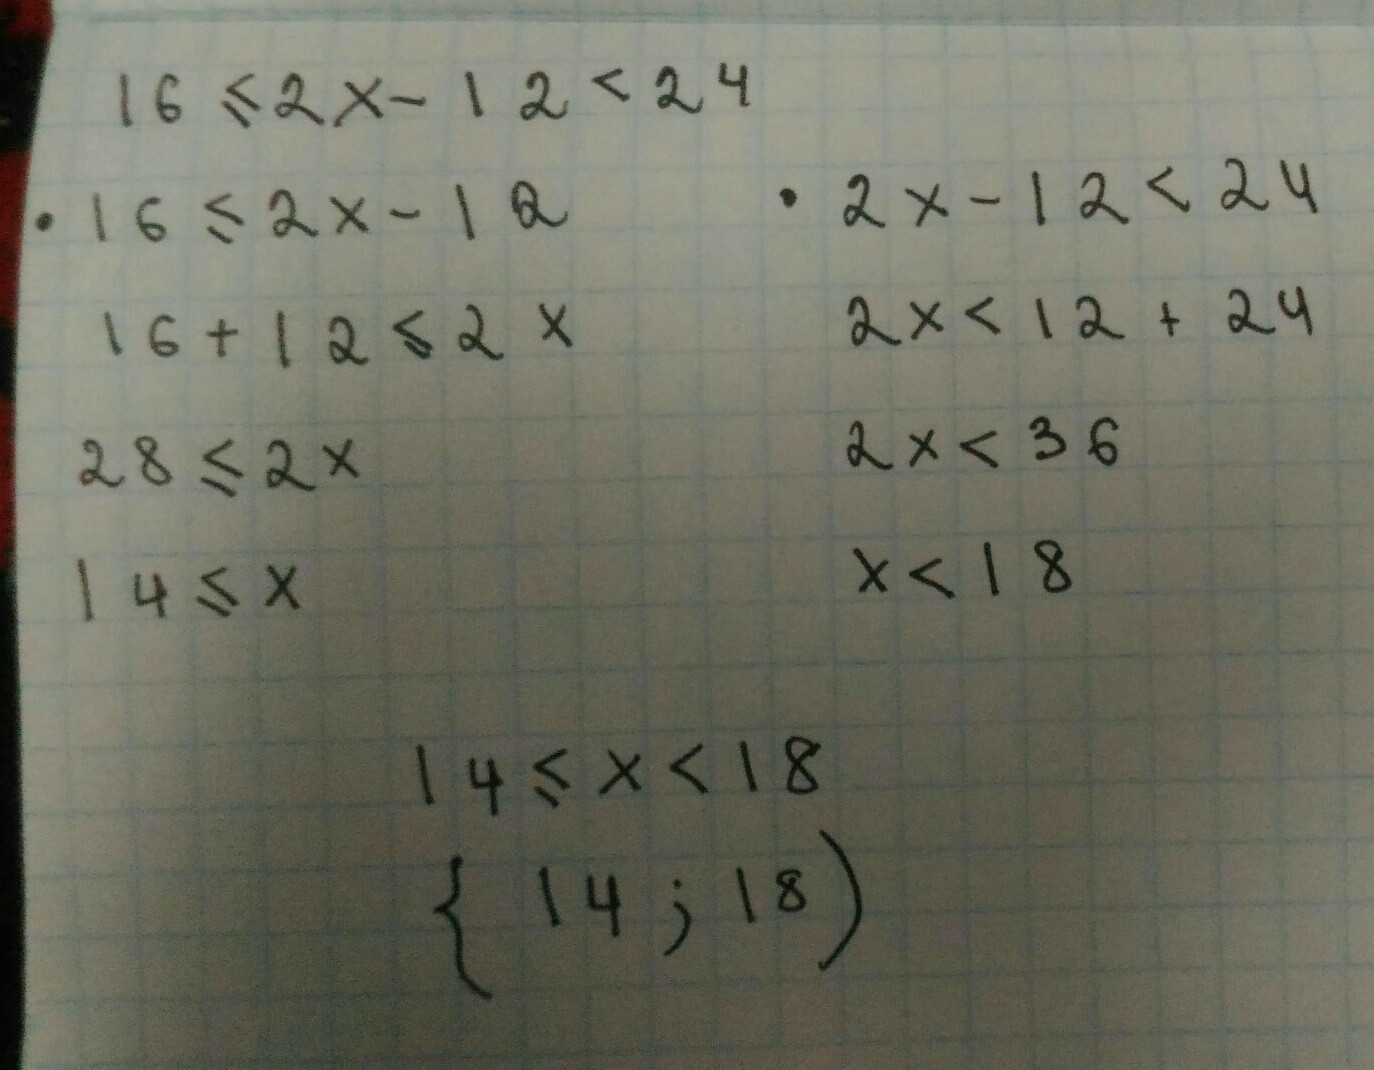 16 ≤ 2x - 12 < 24
• 16 ≤ 2x - 12
16 + 12 ≤ 2x
28 ≤ 2x
14 ≤ x
• 2x - 12 < 24
2x < 12 + 24
2x < 36
x < 18
14 ≤ x < 18
{ 14 ; 18 )